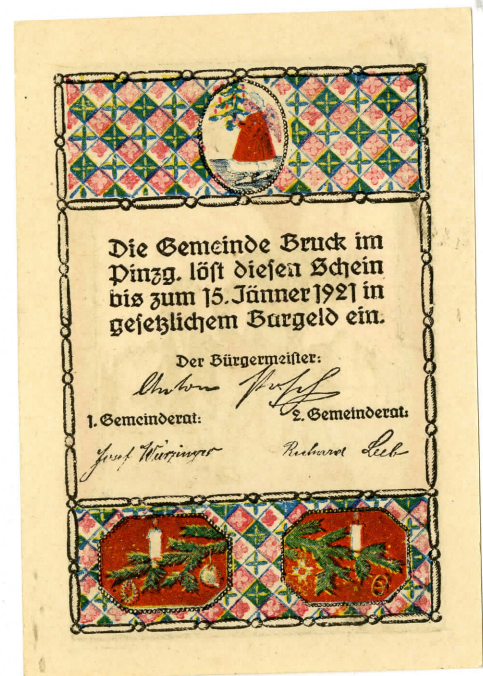 Die Gemeinde Bruck im
Pinzg. löst diesen Schein
bis zum 15. Jänner 1921 in
gesetzlichem Bargeld ein.
Der Bürgermeister:
Anton
1. Gemeinderat: 2. Gemeinderat:
Josef Würzinger Richard Leeb